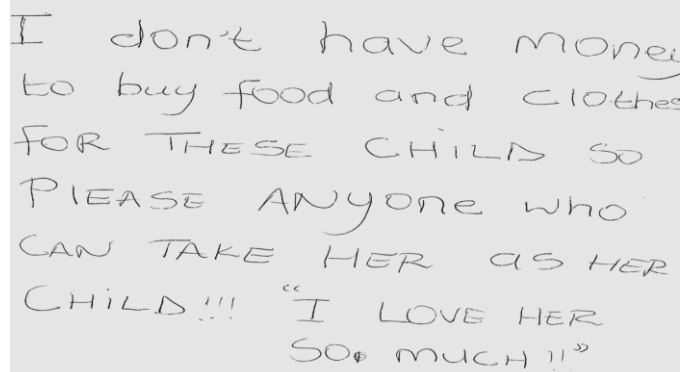 I don't have money
to buy food and clothes
FOR THESE CHILD SO
PlEASE ANyone who
CAN TAKE HER as HER
CHiLD!!! "I LOVE HER
SO. MUCH!!"